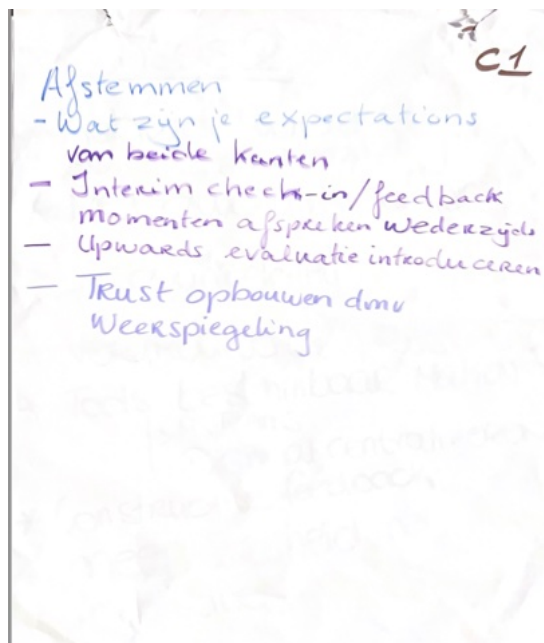 C1
Afstemmen
- Wat zijn je expectations
van beide kanten
- Interim check-in/feedback
momenten afspreken wederzijds
- Upwards evaluatie introduceren
- Trust opbouwen dmv
Weerspiegeling
feedback